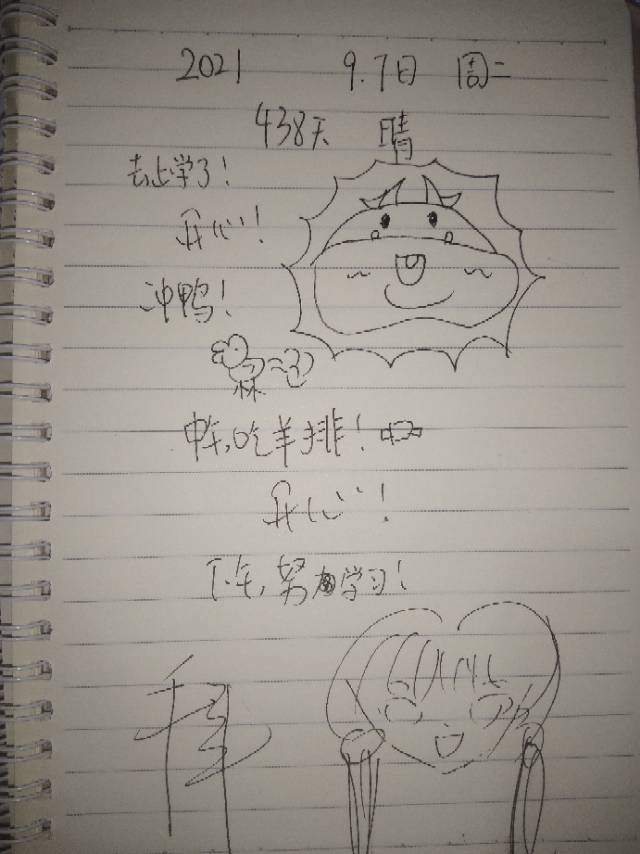 2021 9.7日 周二
438天 晴
去上学了！
开心！
冲鸭！
中午,吃羊排！
开心！
下午,努力学习！